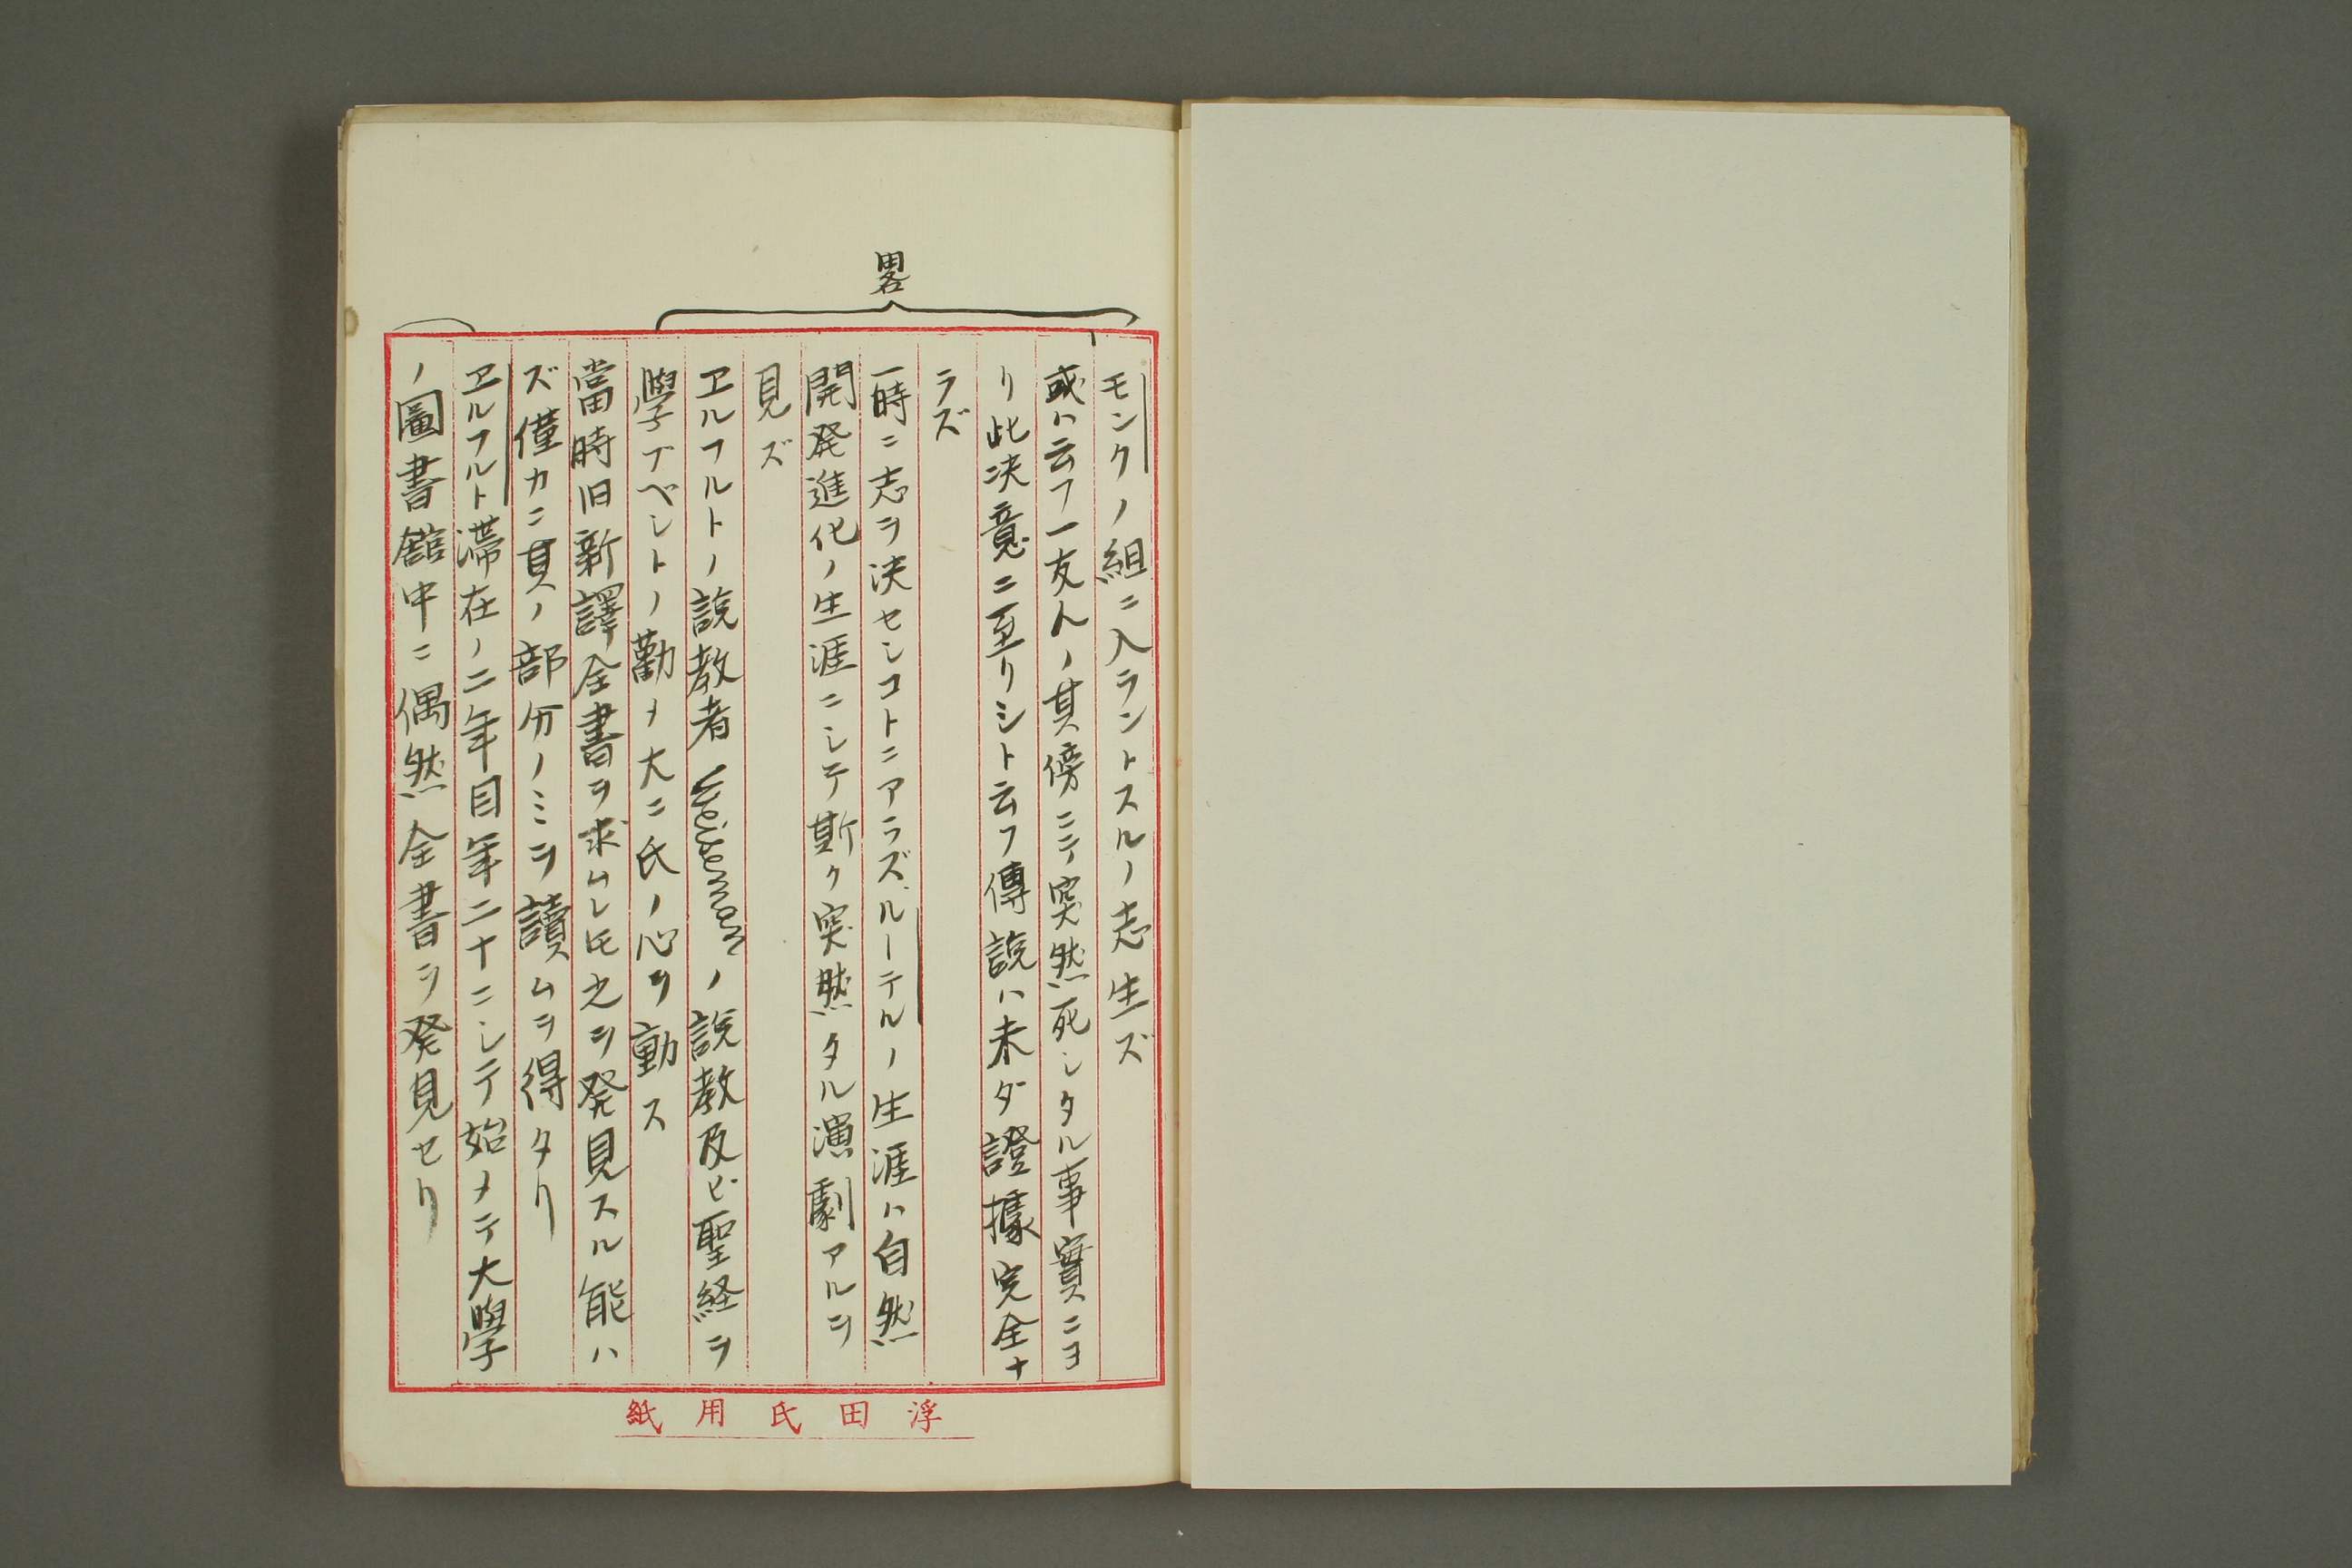 畧
モンクノ組ニ入ラントスルノ志生ズ
或ハ云フ一友人ノ其傍ニテ突然死シタル事實ニヨ
リ此决意ニ至リシト云フ傳説ハ未ダ證據完全ナ
ラズ
一時ニ志ヲ决セシコトニアラズルーテルノ生涯ハ自然
開発進化ノ生涯ニシテ斯ク突然タル演劇アルヲ
見ズ
ヱルフルトノ説教者Weisemannノ説教及ビ聖経ヲ
學ブベシトノ勸メ大ニ氏ノ心ヲ動ス
當時旧新譯全書ヲ求ムレ𪜈之ヲ発見スル能ハ
ズ僅カニ其ノ部分ノミヲ讀ムヲ得タリ
ヱルフルト滞在ノ二年目年二十ニシテ始メテ大學
ノ圖書館中ニ偶然全書ヲ発見セリ
浮田氏用紙